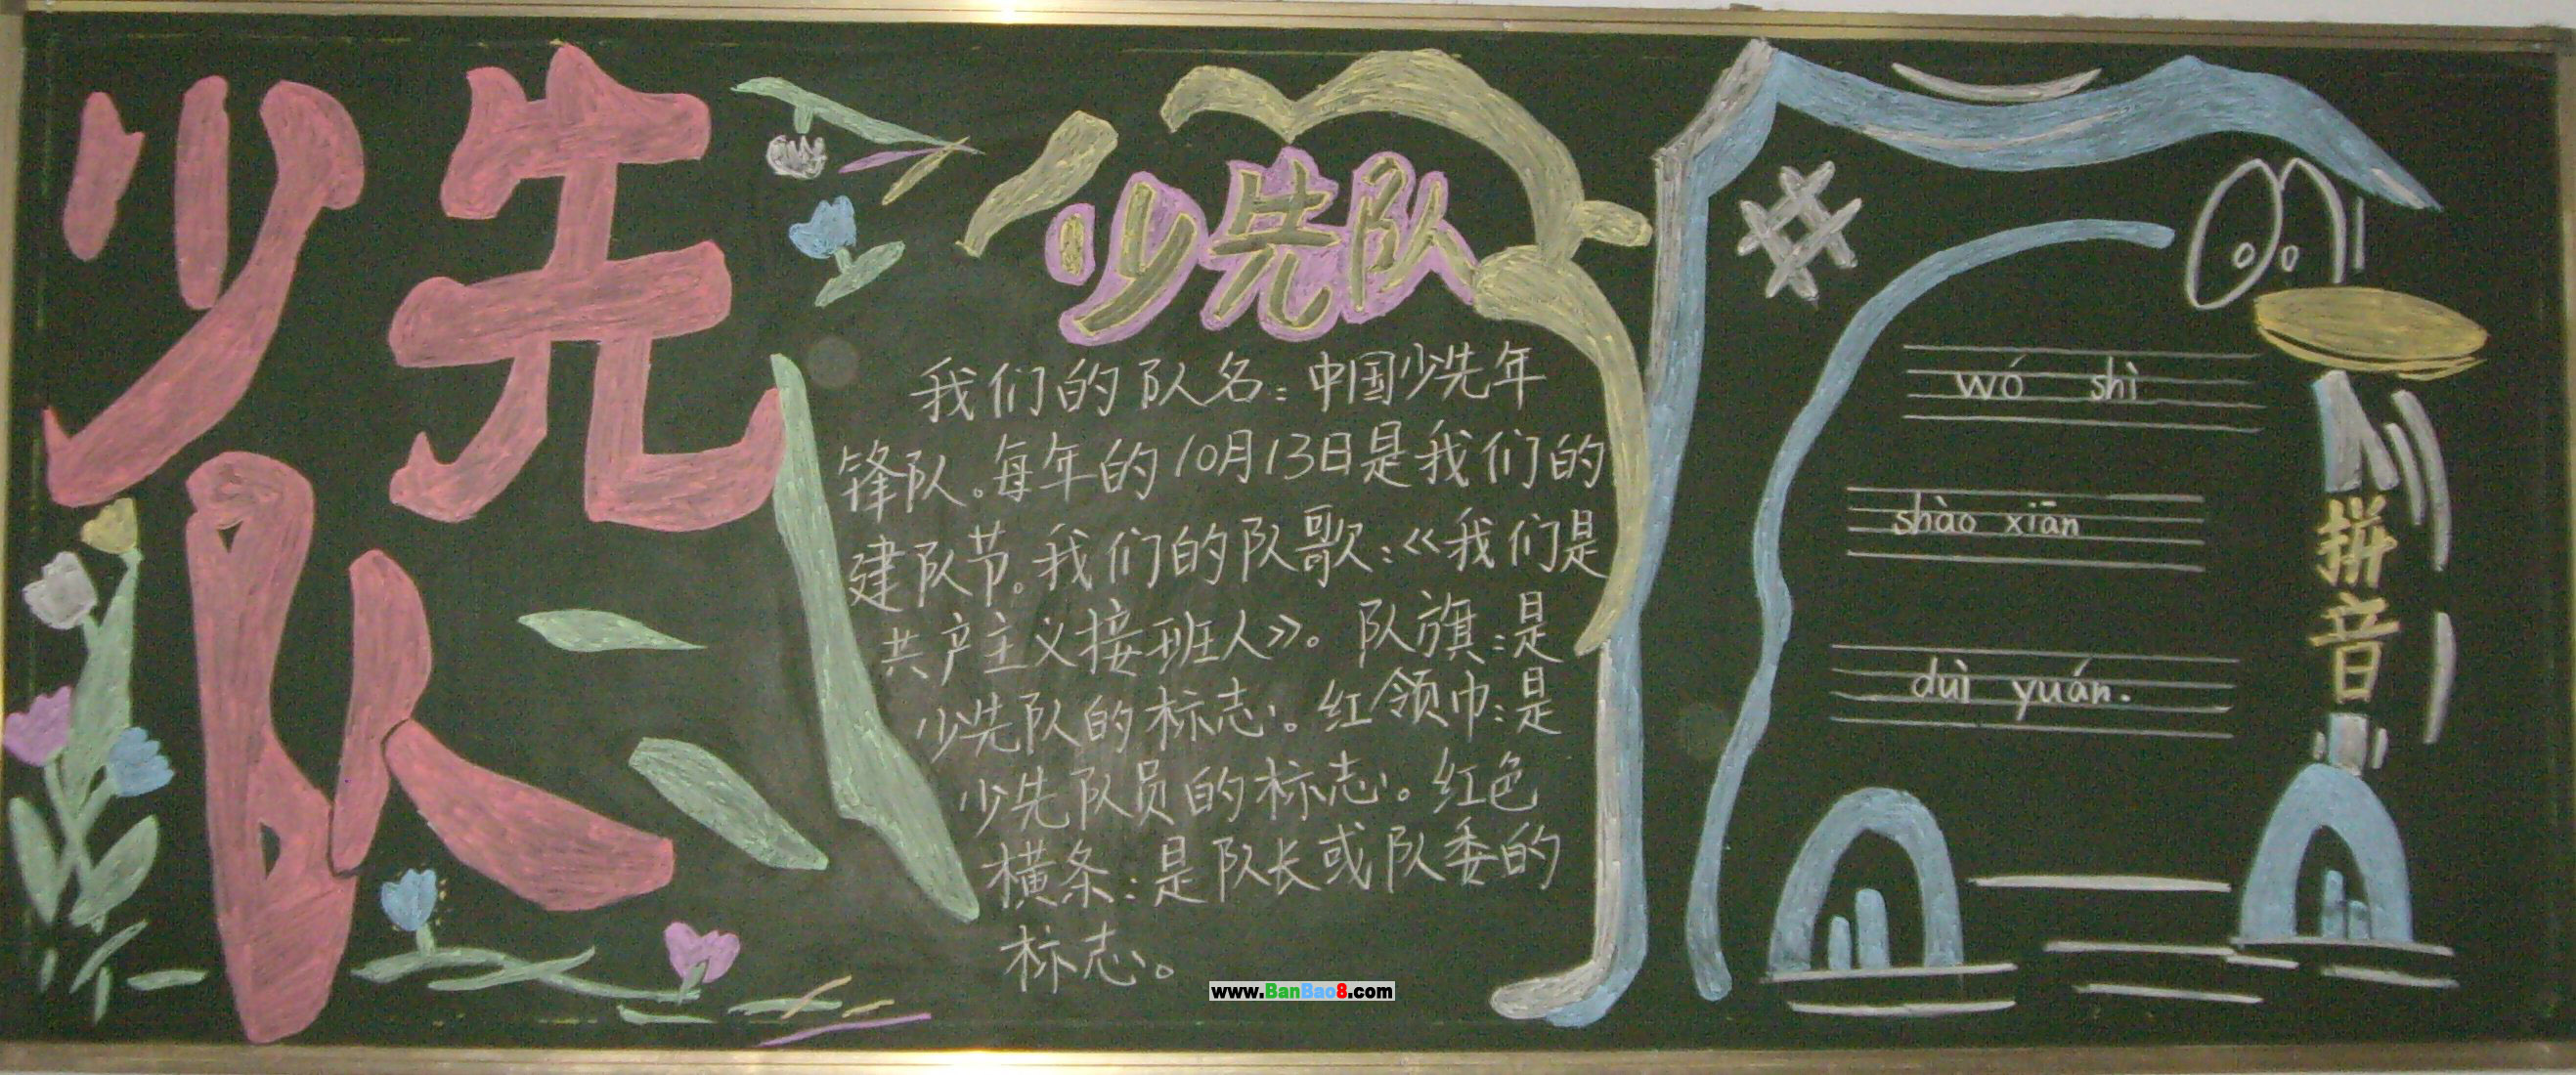 少先
队
少先队
我们的队名:中国少先年
锋队。每年的10月13日是我们的
建队节。我们的队歌:《我们是
共产主义接班人》。队旗:是
少先队的标志。红领巾:是
少先队员的标志。红色
横条:是队长或队委的
标志。
www.BanBao8.com
wó shì
shào xiān
duì yuán.
拼音